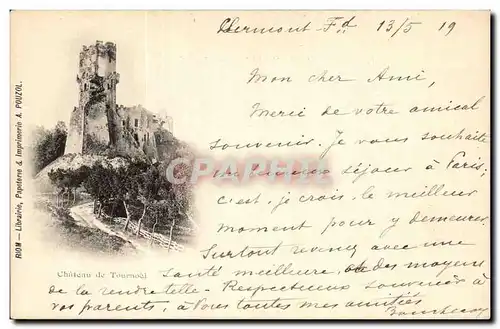 Clermont Fd 13/5 19
Mon cher Ami,
Merci de votre amical
souvenir. Je vous souhaite
un heureux séjour à Paris.
C'est, je crois, le meilleur
moment pour y demeurer.
Surtout revenez avec une
Santé meilleure, et des moyens
de la rendre telle - Respectueux souvenir à
vos parents, à Vous toutes mes amitiés
RIOM — Librairie, Papeterie & Imprimerie A. POUZOL.
Château de Tournoël
CPARAMA